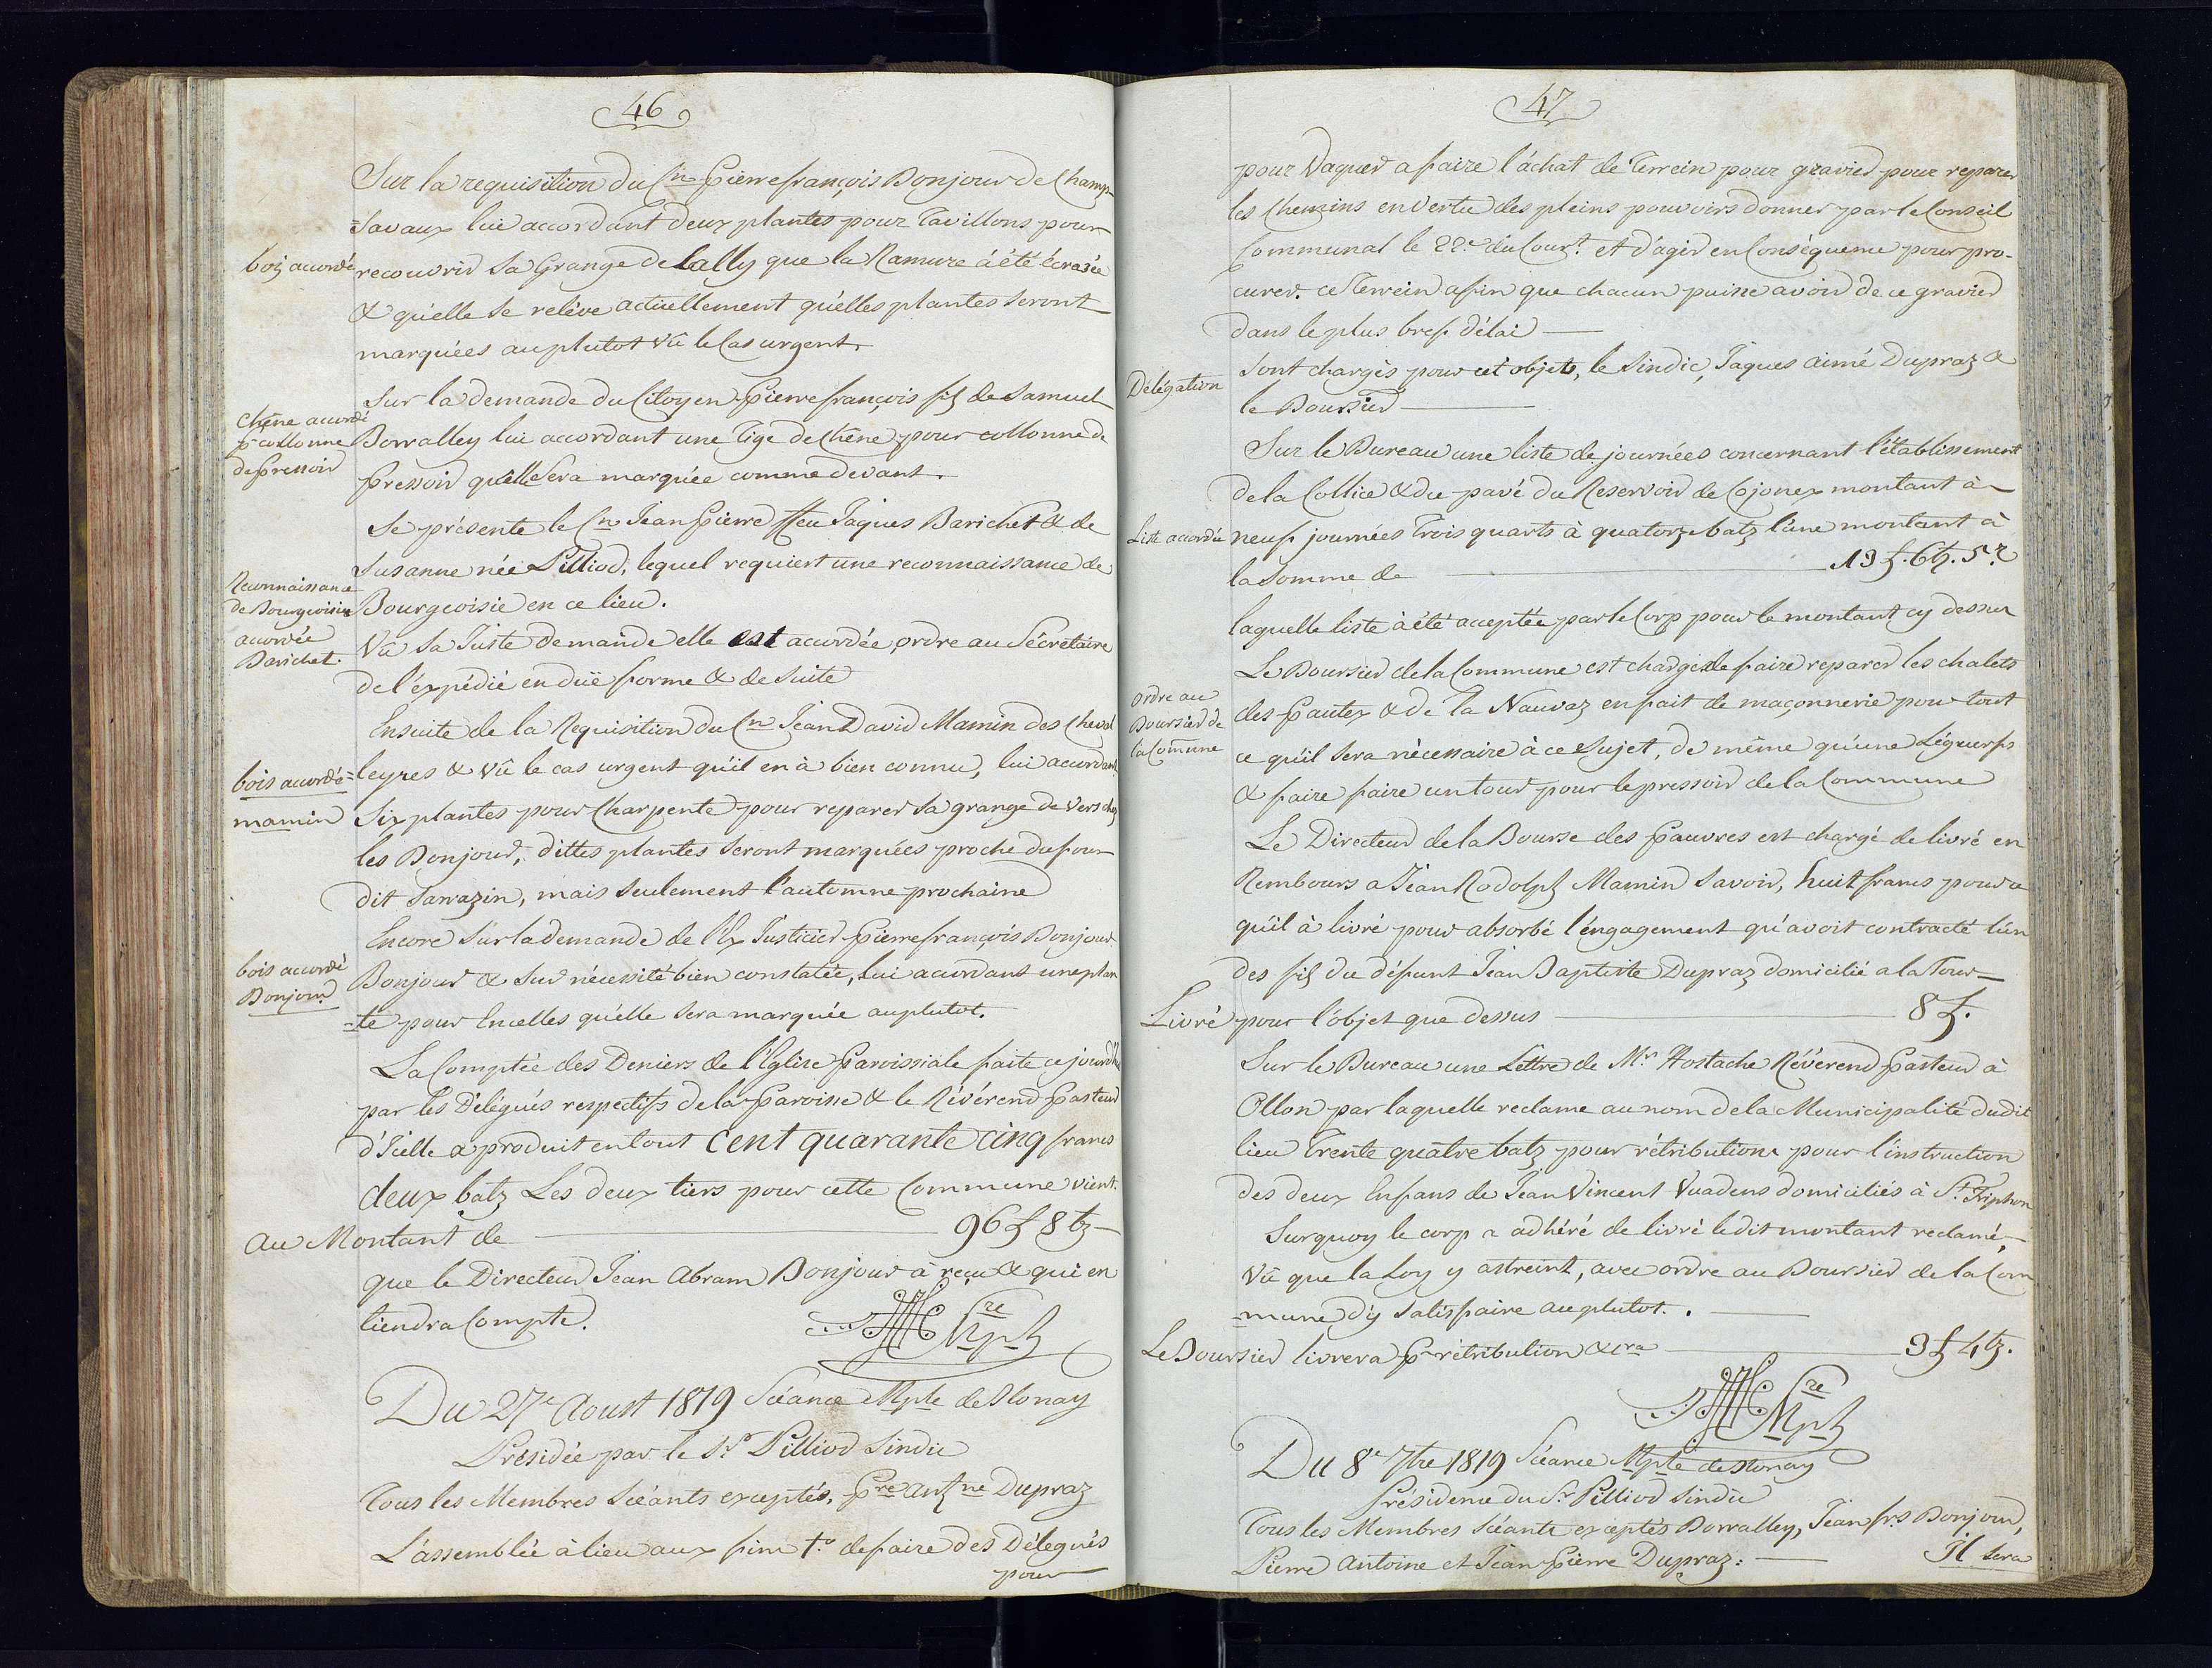 46
Sur la requisition du Cn Pierrefrançois Bonjour de Champ-
-Savaux lui accordant deux plantes pour Tavillons pour
bois accordé
recouvrir Sa Grange de Lally que la Ramure à été écrasée
& qu'elle Se relève actuellement qu'elles plantes Seront
marquées au plutot vû le Cas urgent.
Sur la demande du Citoyen Pierrefrançois fils de Samuel
Chêne accordé
pr collonne
de Pressoir
Borralley lui accordant une Tige de Chêne pour collonne de
Pressoir qu'elle Sera marquée comme devant.
Se présente le Cn Jean Pierre ffeu Jaques Barichet & de
Susanne née Pilliod, lequel requiert une reconnaissance de
Reconnaissance
de Bourgeoisie
accordée
Barichet.
Bourgeoisie en ce lieu.
Vû Sa Juste demande elle est accordée, ordre au Sécretaire
de l'expédié en düe forme & de Suite
Ensuite de la Requisition du Cn Jean David Mamin des Cheval
bois accordé
mamin
=leyres & vû le cas urgent qu'il en à bien connu, lui accordant
Six plantes pour Charpente pour reparer Sa grange de vers chez
les Bonjour, dittes plantes Seront marquées proche du four
dit Sarrazin, mais Seulement l'automne prochaine
Encore Sur la demande de l'Ex Justicier Pierrefrançois Bonjour
bois accordé
Bonjour
Bonjour & Sur nécessité bien constatée, Lui accordant une plan
-te pour Encelles qu'elle Sera marquée au plutot.
La Comptée des Deniers de l'Eglise Paroissiale faite ce jourd'hui
par les Délégués respectifs de la Paroisse & le Révérend Pasteur
d'Icelle a produit en tout Cent quarante cinq francs
deux batz Les deux tiers pour cette Commune vient
au Montant de 96 f 8 bz
que le Directeur Jean Abram Bonjour à reçu & qui en
tiendra Compte.
Sre Mplé
Du 27e Aoust 1819 Séance Mple de Blonay
Présidée par le Sr Pilliod Sindic
Tous les Membres Séants exceptés, Pre antne Dupraz
L'assemblée à lieu aux fins 1o de faire des Délegués
pour
47
pour Vaquer a faire l'achat de Terrein pour gravier pour reparer
les Chemins en Vertu des pleins pouvoirs donner par le Conseil
Communal le 22e du Courrt et d'agir en Conséquence pour pro-
curer ce Terrein afin que chacun puisse avoir de ce gravier
dans le plus bref délai
Délégation
Sont chargés pour cet objets, le Sindic, Jaques Aimé Dupraz &
le Boursier
Sur le Bureau une liste de journées concernant l'établissement
de la Collice & du pavé du Reservoir de Cojonex montant à
Liste accordée
neuf journées Trois quarts à quatorze batz l'une montant à
la Somme de 13 f. 6 bz. 5 r
laquelle liste à été acceptée par le Corp pour le montant cy dessus
Le Boursier de la Commune est chargé de faire reparer les chalets
ordre au
Boursier de
la Comune
des Pautex & de la Nauvaz en fait de maçonnerie pour tout
ce qu'il Sera nécessaire à ce Sujet, de même qu'une Légreurfs
& faire faire un tour pour le pressoir de la Commune
Le Directeur de la Bourse des Pauvres est chargé de livré en
Rembours a Jean Rodolph Mamin Savoir, huit francs pour ce
qu'il à livré pour absorbé l'engagement qu'avoit contracté l'un
des fils du défunt Jean Baptiste Dupraz domicilié a la Tour
Livré pour l'objet que dessus 8 f.
Sur le Bureau une Lettre de Mr Hostache Révérend Pasteur à
Ollon par laquelle reclame au nom de la Municipalité dudit
lieu Trente quatre batz pour rétribution pour l'instruction
des deux Enfans de Jean Vincent Vuadens domiciliés à St Triphon
Surquoy le corp a adhéré de livré ledit montant reclamé,
Vû que la Loy y astreint, avec ordre au Boursier de la Com
-mune d'y Satisfaire au plutot.
Le Boursier livrera pr rétribution &cra 3 f 4 bz.
Sre Mplé
Du 8e 7bre 1819 Séance Mple de Blonay
Présidence du Sr Pilliod Sindic
Tous les Membres Séants exceptés Borralley, Jean frs Bonjour,
Pierre Antoine et Jean Pierre Dupraz:
Il Sera